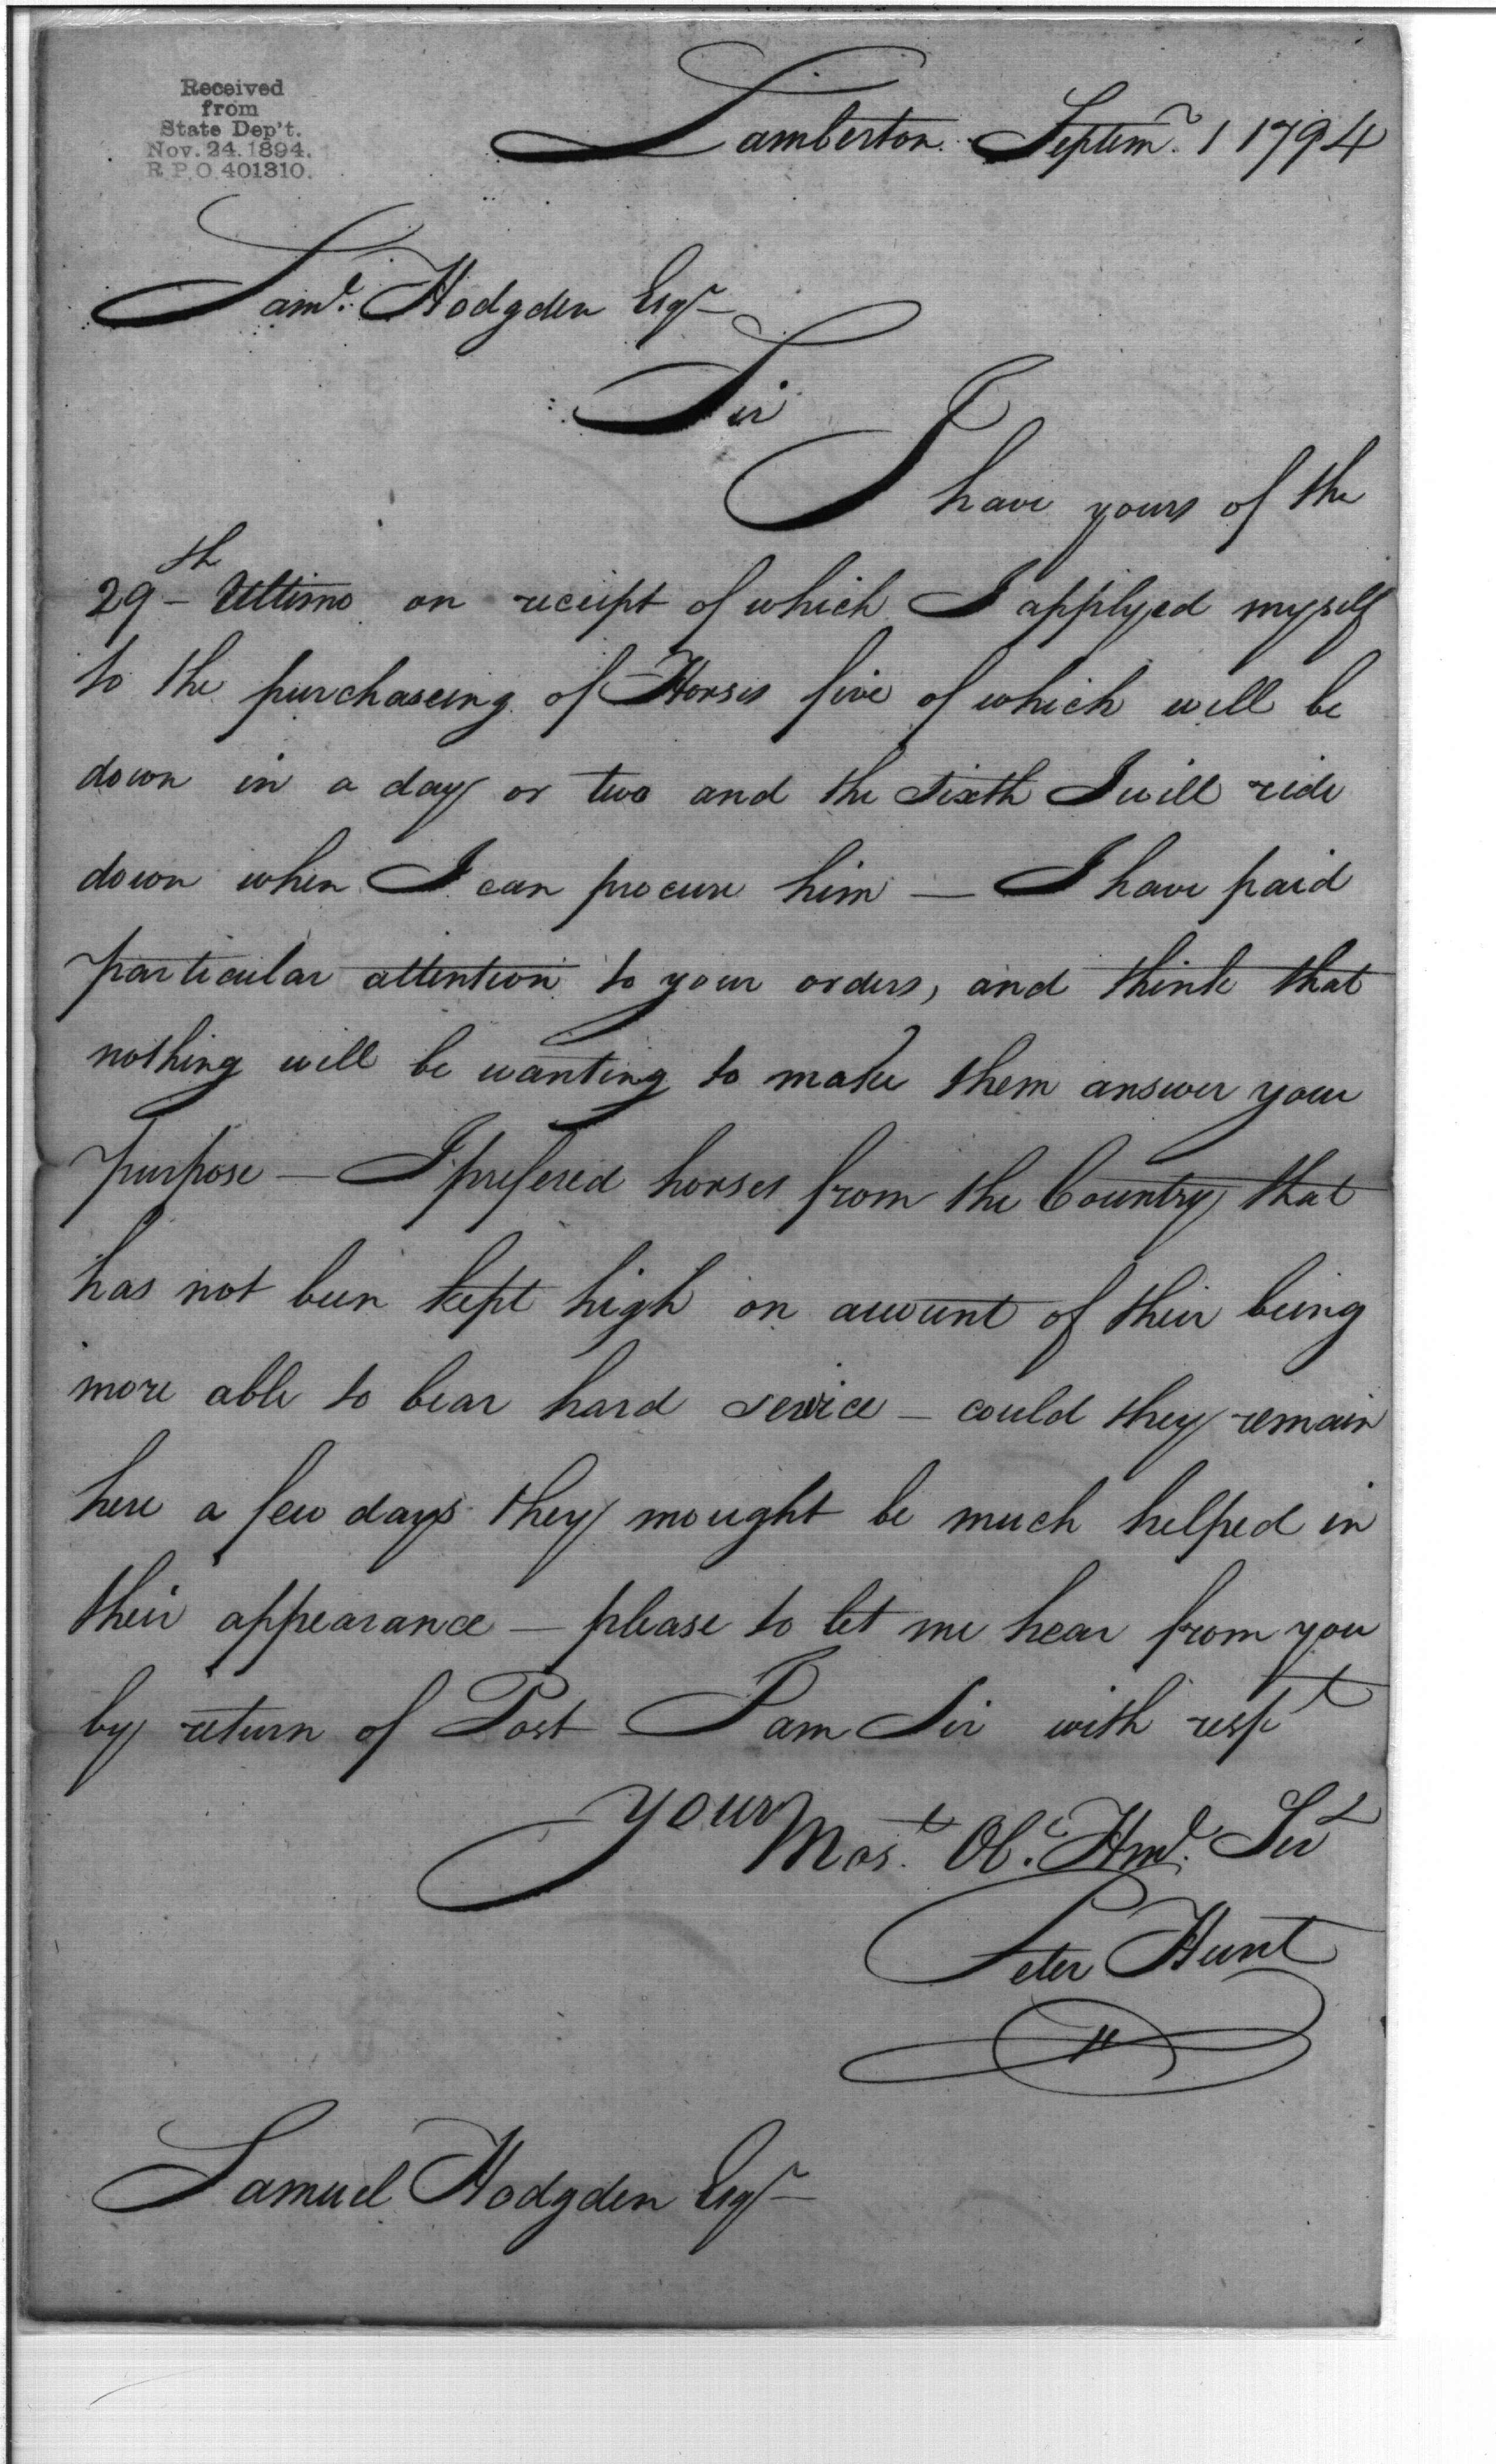 Received
from
State Dep't.
Nov. 24. 1894.
R.P.O. 401310.
Lamberton Septemr. 1 1794
Saml. Hodgden Esqr
Sir
I have yours of the
29th Ultimo on receipt of which I applyed myself
to the purchaseing of Horses five of which will be
down in a day or two and the sixth I will ride
down when I can procure him — I have paid
particular attention to your orders, and think that
nothing will be wanting to make them answer your
purpose — I prefered horses from the Country that
has not been kept high on account of their being
more able to bear hard service — could they remain
here a few days they mought be much helped in
their appearance — please to let me hear from you
by return of Post I am Sir with respt
your Most. Obt. Hml. Sert
Peter Hunt
Samuel Hodgden Esqr